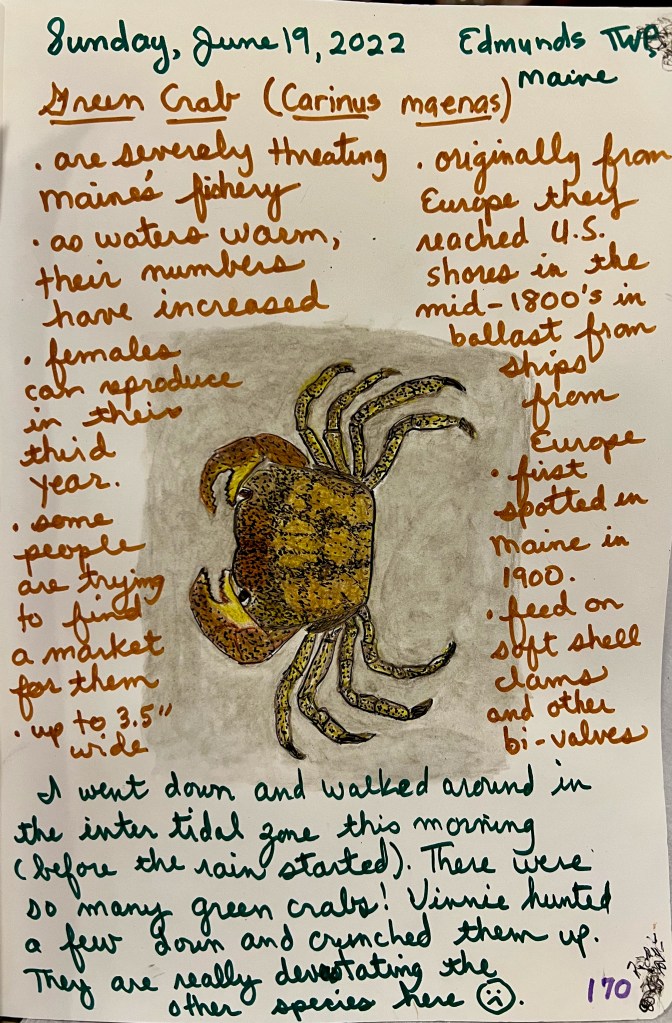 Sunday, June 19, 2022 Edmunds TWP,
Maine
Green Crab (Carinus maenas)
• are severely threating
Maine's fishery
• as waters warm,
their numbers
have increased
• females
can reproduce
in their
third
year.
• some
people
are trying
to find
a market
for them
• up to 3.5"
wide
• originally from
Europe they
reached U.S.
shores in the
mid-1800's in
ballast from
ships
from
Europe
• first
spotted in
Maine in
1900.
• feed on
soft shell
clams
and other
bi-valves
I went down and walked around in
the inter tidal zone this morning
(before the rain started). There were
so many green crabs! Vinnie hunted
a few down and crunched them up.
They are really devastating the
other species here ☹.
170